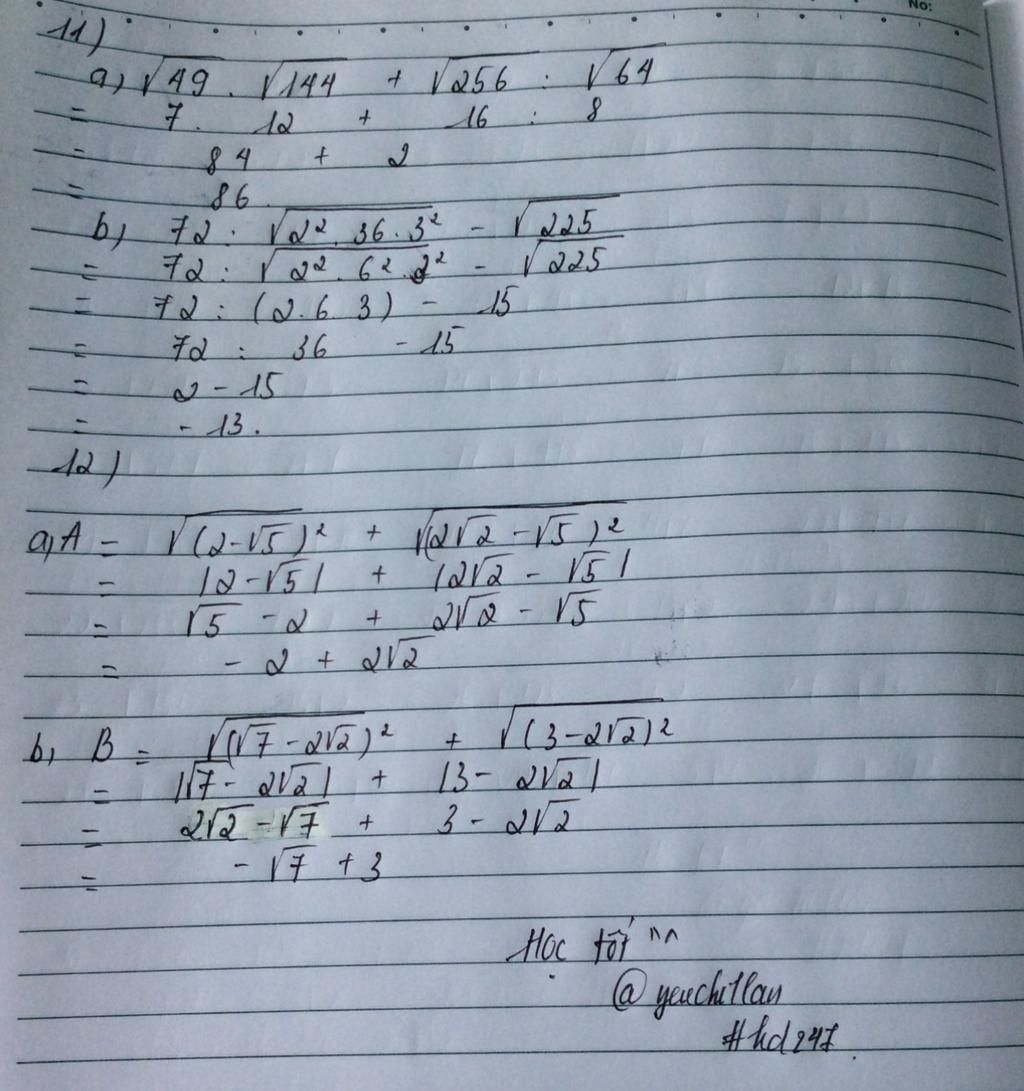 No:
11)
a) √49 . √144 + √256 : √64
= 7 . 12 + 16 : 8
= 84 + 2
= 86
b) 72 : √2² . 36 . 3² - √225
= 72 : √2² . 6² . 3² - √225
= 72 : (2.6 3) - 15
= 72 : 36 - 15
= 2 - 15
= - 13.
12)
a) A = √(2-√5)² + √(2√2 - √5)²
= |2-√5| + |2√2 - √5|
= √5 - 2 + 2√2 - √5
= - 2 + 2√2
b) B = √(√7 - 2√2)² + √(3 - 2√2)²
= |√7 - 2√2| + |3 - 2√2|
= 2√2 - √7 + 3 - 2√2
= - √7 + 3
Học tốt ^^
@yeuchillan
#hd247